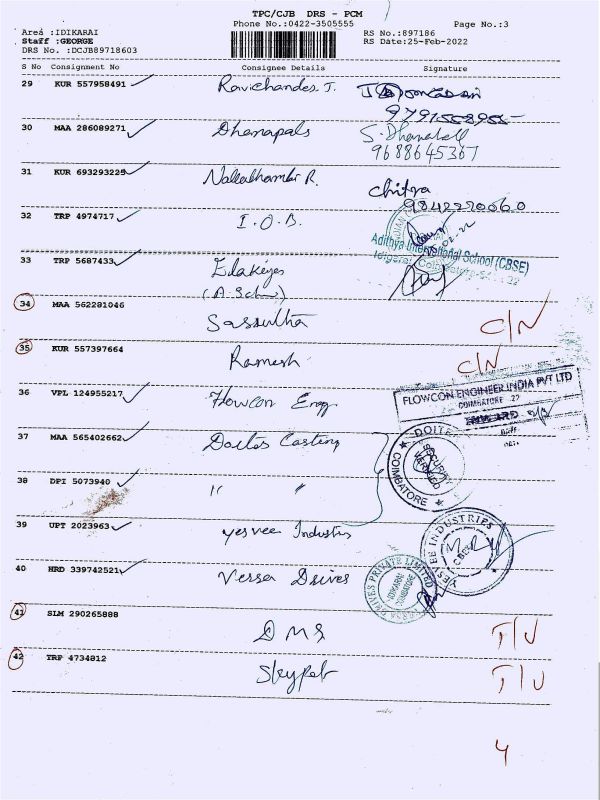 TPC/CJB DRS - PCM
Phone No.:0422-3505555
Page No.:3
Area :IDIKARAI
Staff :GEORGE
DRS No. :DCJB89718603
RS No.:897186
RS Date:25-Feb-2022
S No Consignment No Consignee Details Signature
29 KUR 557958491 Ravichandes J.
30 MAA 286089271 Dhanapals S. Dhanabal
9688645367
31 KUR 693293225 Nallathambi R. Chitra
9842220060
32 TRP 4974717 I.O.B.
Adithya International School (CBSE)
33 TRP 5687433
34 MAA 562281046 C/N
35 KUR 557397664 Ramesh C/N
36 VPL 124955217 Flowcon Engg
FLOWCON ENGINEER INDIA PVT LTD
COIMBATORE 22
37 MAA 565402662 Doitos Casting
COIMBATORE
SECURITY
38 DPI 5073940 " "
39 UPT 2023963 yesvee Industries
YESVEE INDUSTRIES
40 HRD 339742521 Versa Drives
VERSA DRIVES PRIVATE LIMITED
IDIKARAI
COIMBATORE
41 SLM 290265888 DMS T/U
42 TRP 4734812 T/U
4